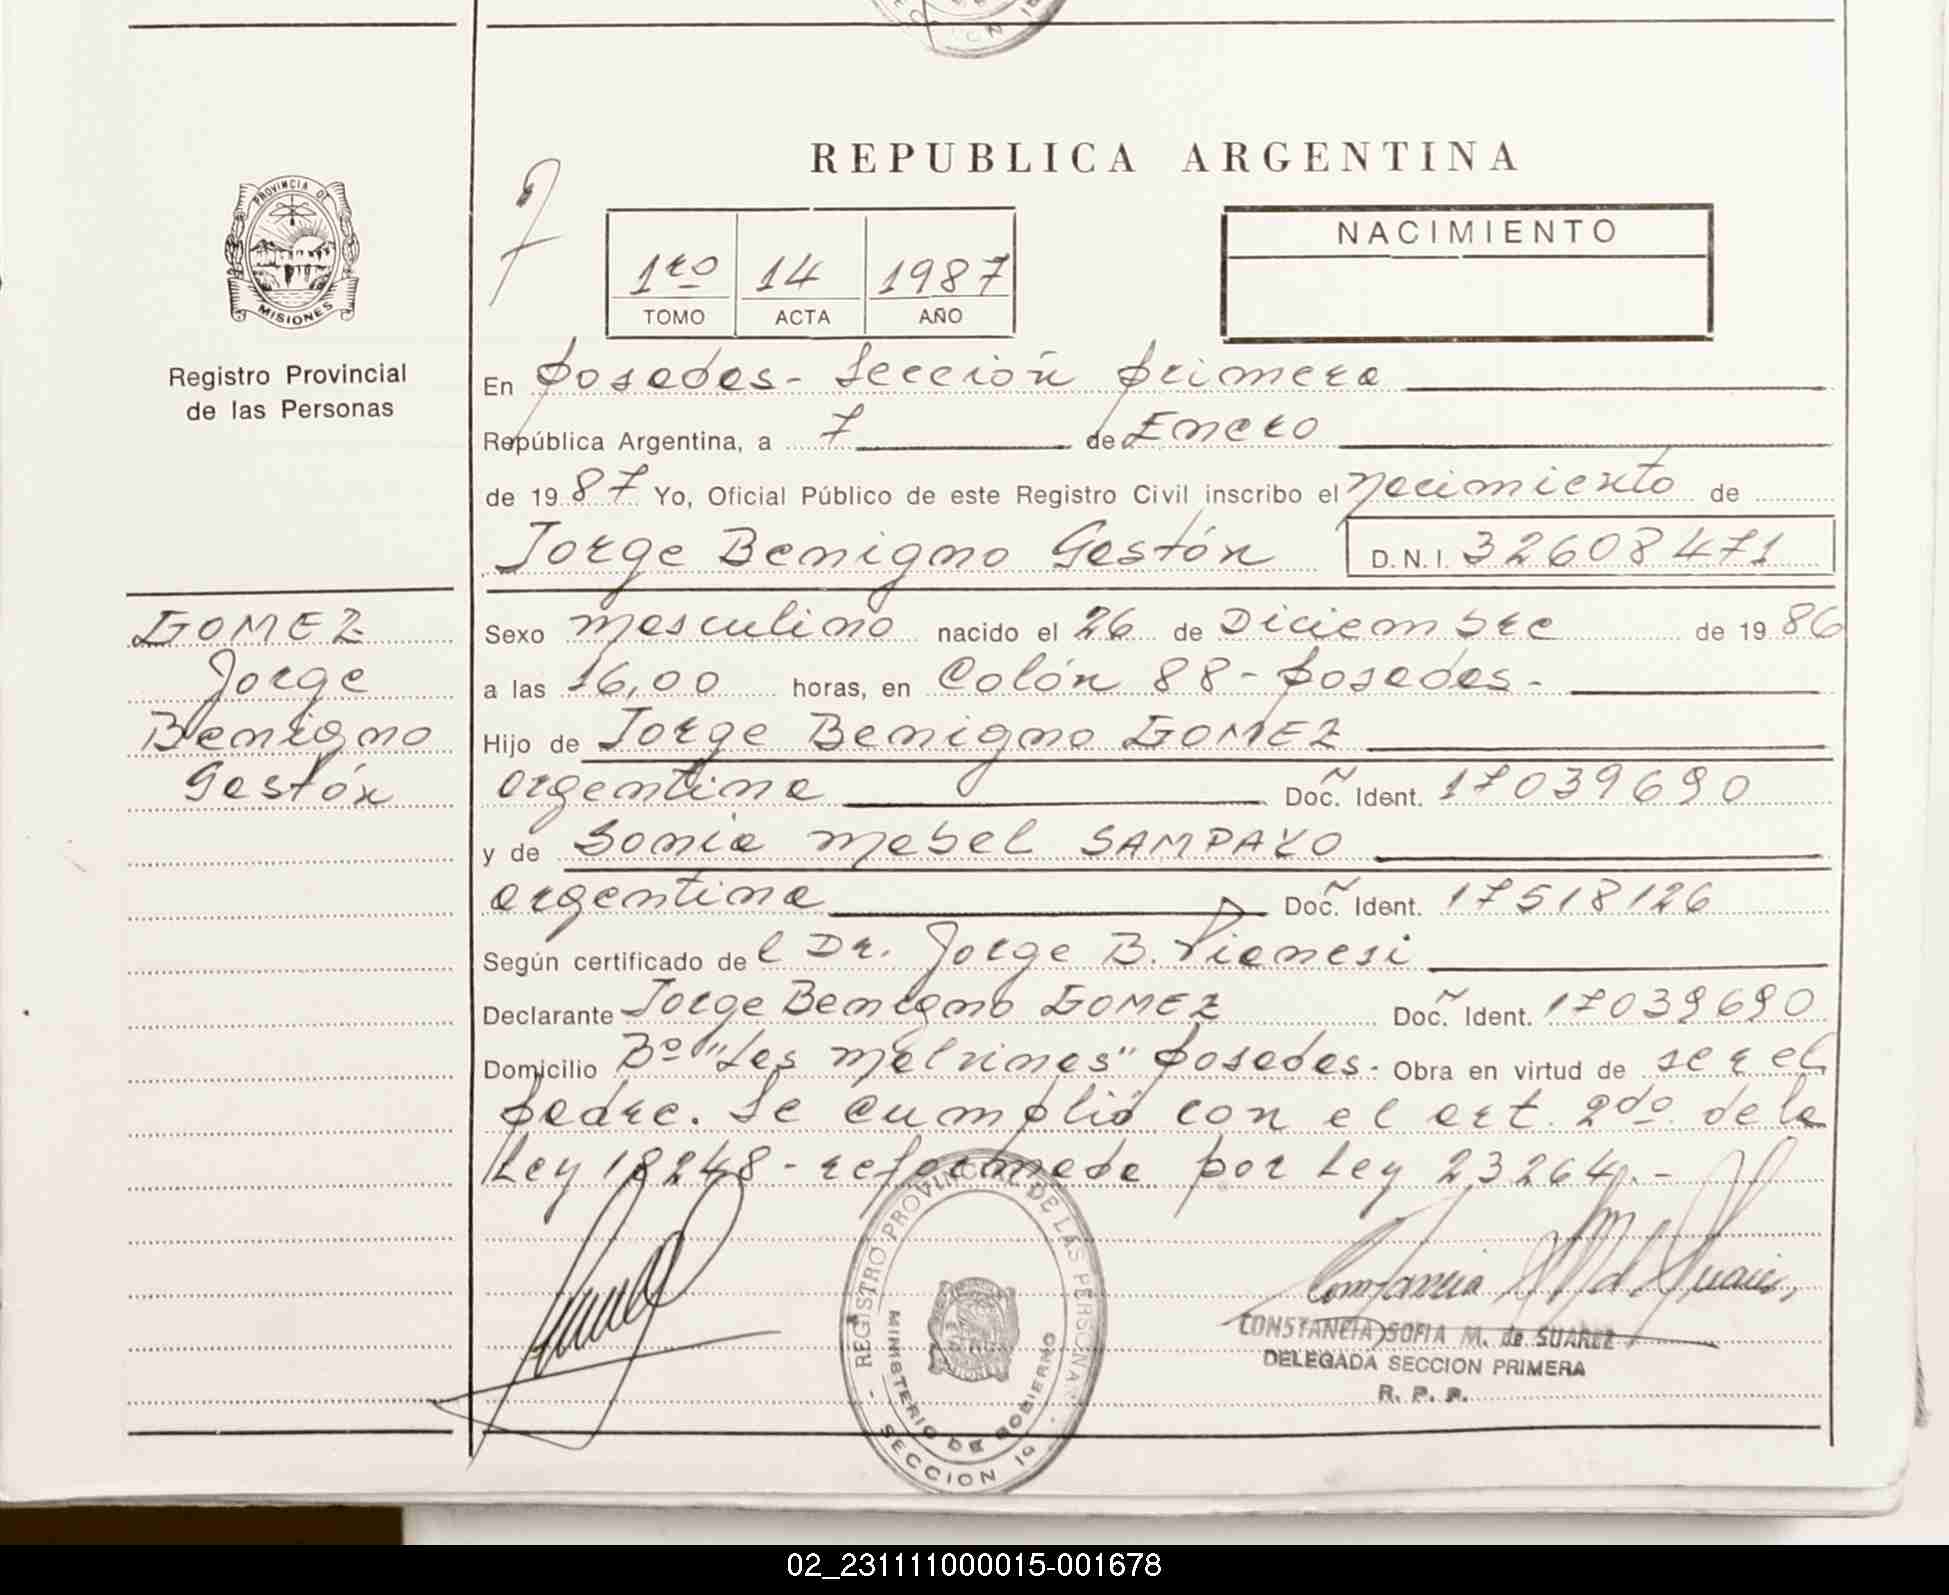 REPUBLICA ARGENTINA
PROVINCIA DE
MISIONES
Registro Provincial
de las Personas
1ro 14 1987
TOMO ACTA AÑO
NACIMIENTO
En Posadas - Sección primera
República Argentina, a 7 de Enero
de 1987 Yo, Oficial Público de este Registro Civil inscribo el Nacimiento de
Jorge Benigno Gastón D.N.I. 32608471
GOMEZ
Jorge
Benigno
Gastón
Sexo masculino nacido el 26 de Diciembre de 1986
a las 16,00 horas, en Colón 88 - Posadas -
Hijo de Jorge Benigno GOMEZ
argentina Doc. Ident. 17039690
y de Sonia Mabel SAMPAYO
argentina Doc. Ident. 17518126
Según certificado del Dr. Jorge B. Vianesi
Declarante Jorge Benigno GOMEZ Doc. Ident. 17039690
Domicilio Bº "Las Malvinas" Posadas - Obra en virtud de ser el
padre. Se cumplió con el art. 2do. de la
Ley 18248 - reformada por Ley 23264. -
REGISTRO PROVINCIAL DE LAS PERSONAS
MINISTERIO DE GOBIERNO
SECCION 1º
CONSTANCIA SOFIA M. de SUAREZ
DELEGADA SECCION PRIMERA
R. P. P.
02_231111000015-001678